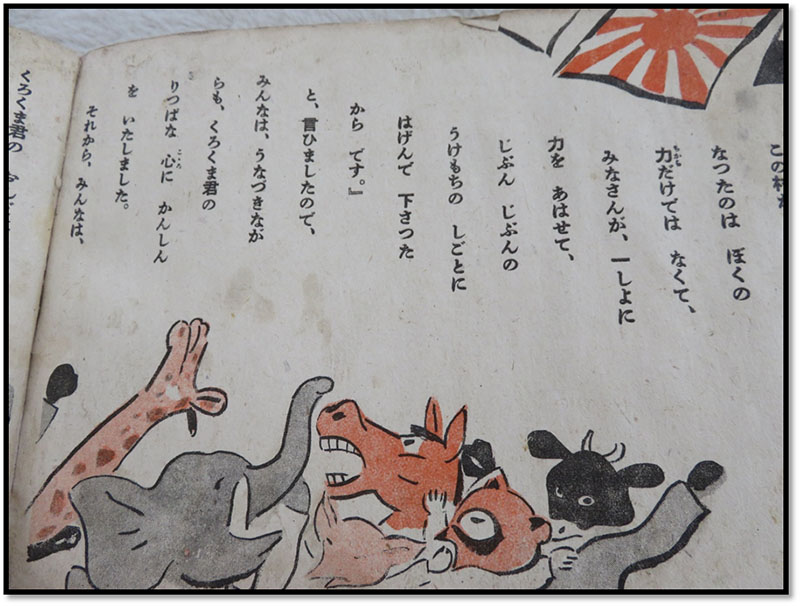 この村が
なつたのは ぼくの
力だけでは なくて、
みなさんが、一しよに
力を あはせて、
じぶん じぶんの
うけもちの しごとに
はげんで 下さつた
から です。』
と、言ひましたので、
みんなは、うなづきなが
らも、くろくま君の
りつぱな 心に かんしん
を いたしました。
それから、みんなは、
くろくま君の